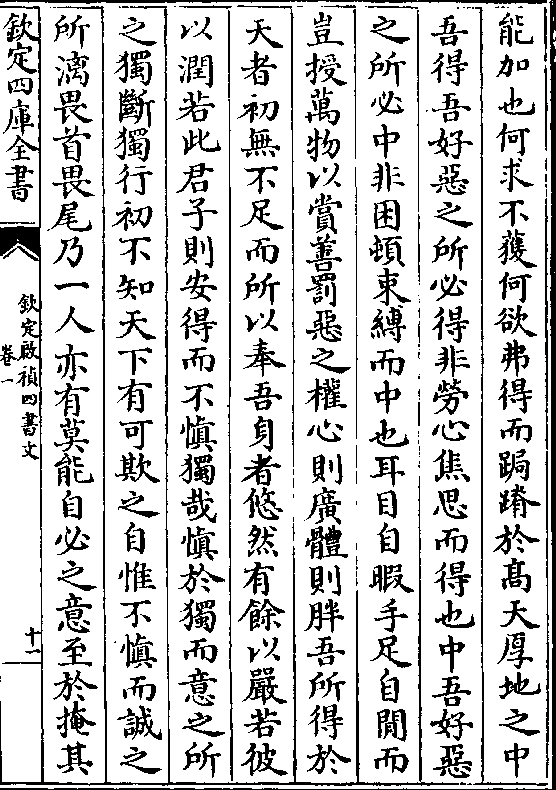 能加也何求不獲何欲弗得而跼蹐於髙天厚地之中
吾得吾好惡之所必得非勞心焦思而得也中吾好惡
之所必中非困頓束縛而中也耳目自暇手足自閒而
豈授萬物以賞善罰惡之權心則廣體則胖吾所得於
天者初無不足而所以奉吾身者悠然有餘以嚴若彼
以潤若此君子則安得而不慎獨哉慎於獨而意之所
之獨斷獨行初不知天下有可欺之自惟不慎而誠之
所漓畏首畏尾乃一人亦有莫能自必之意至於掩其
欽定四庫全書
欽定啟禎四書文
卷一
十一